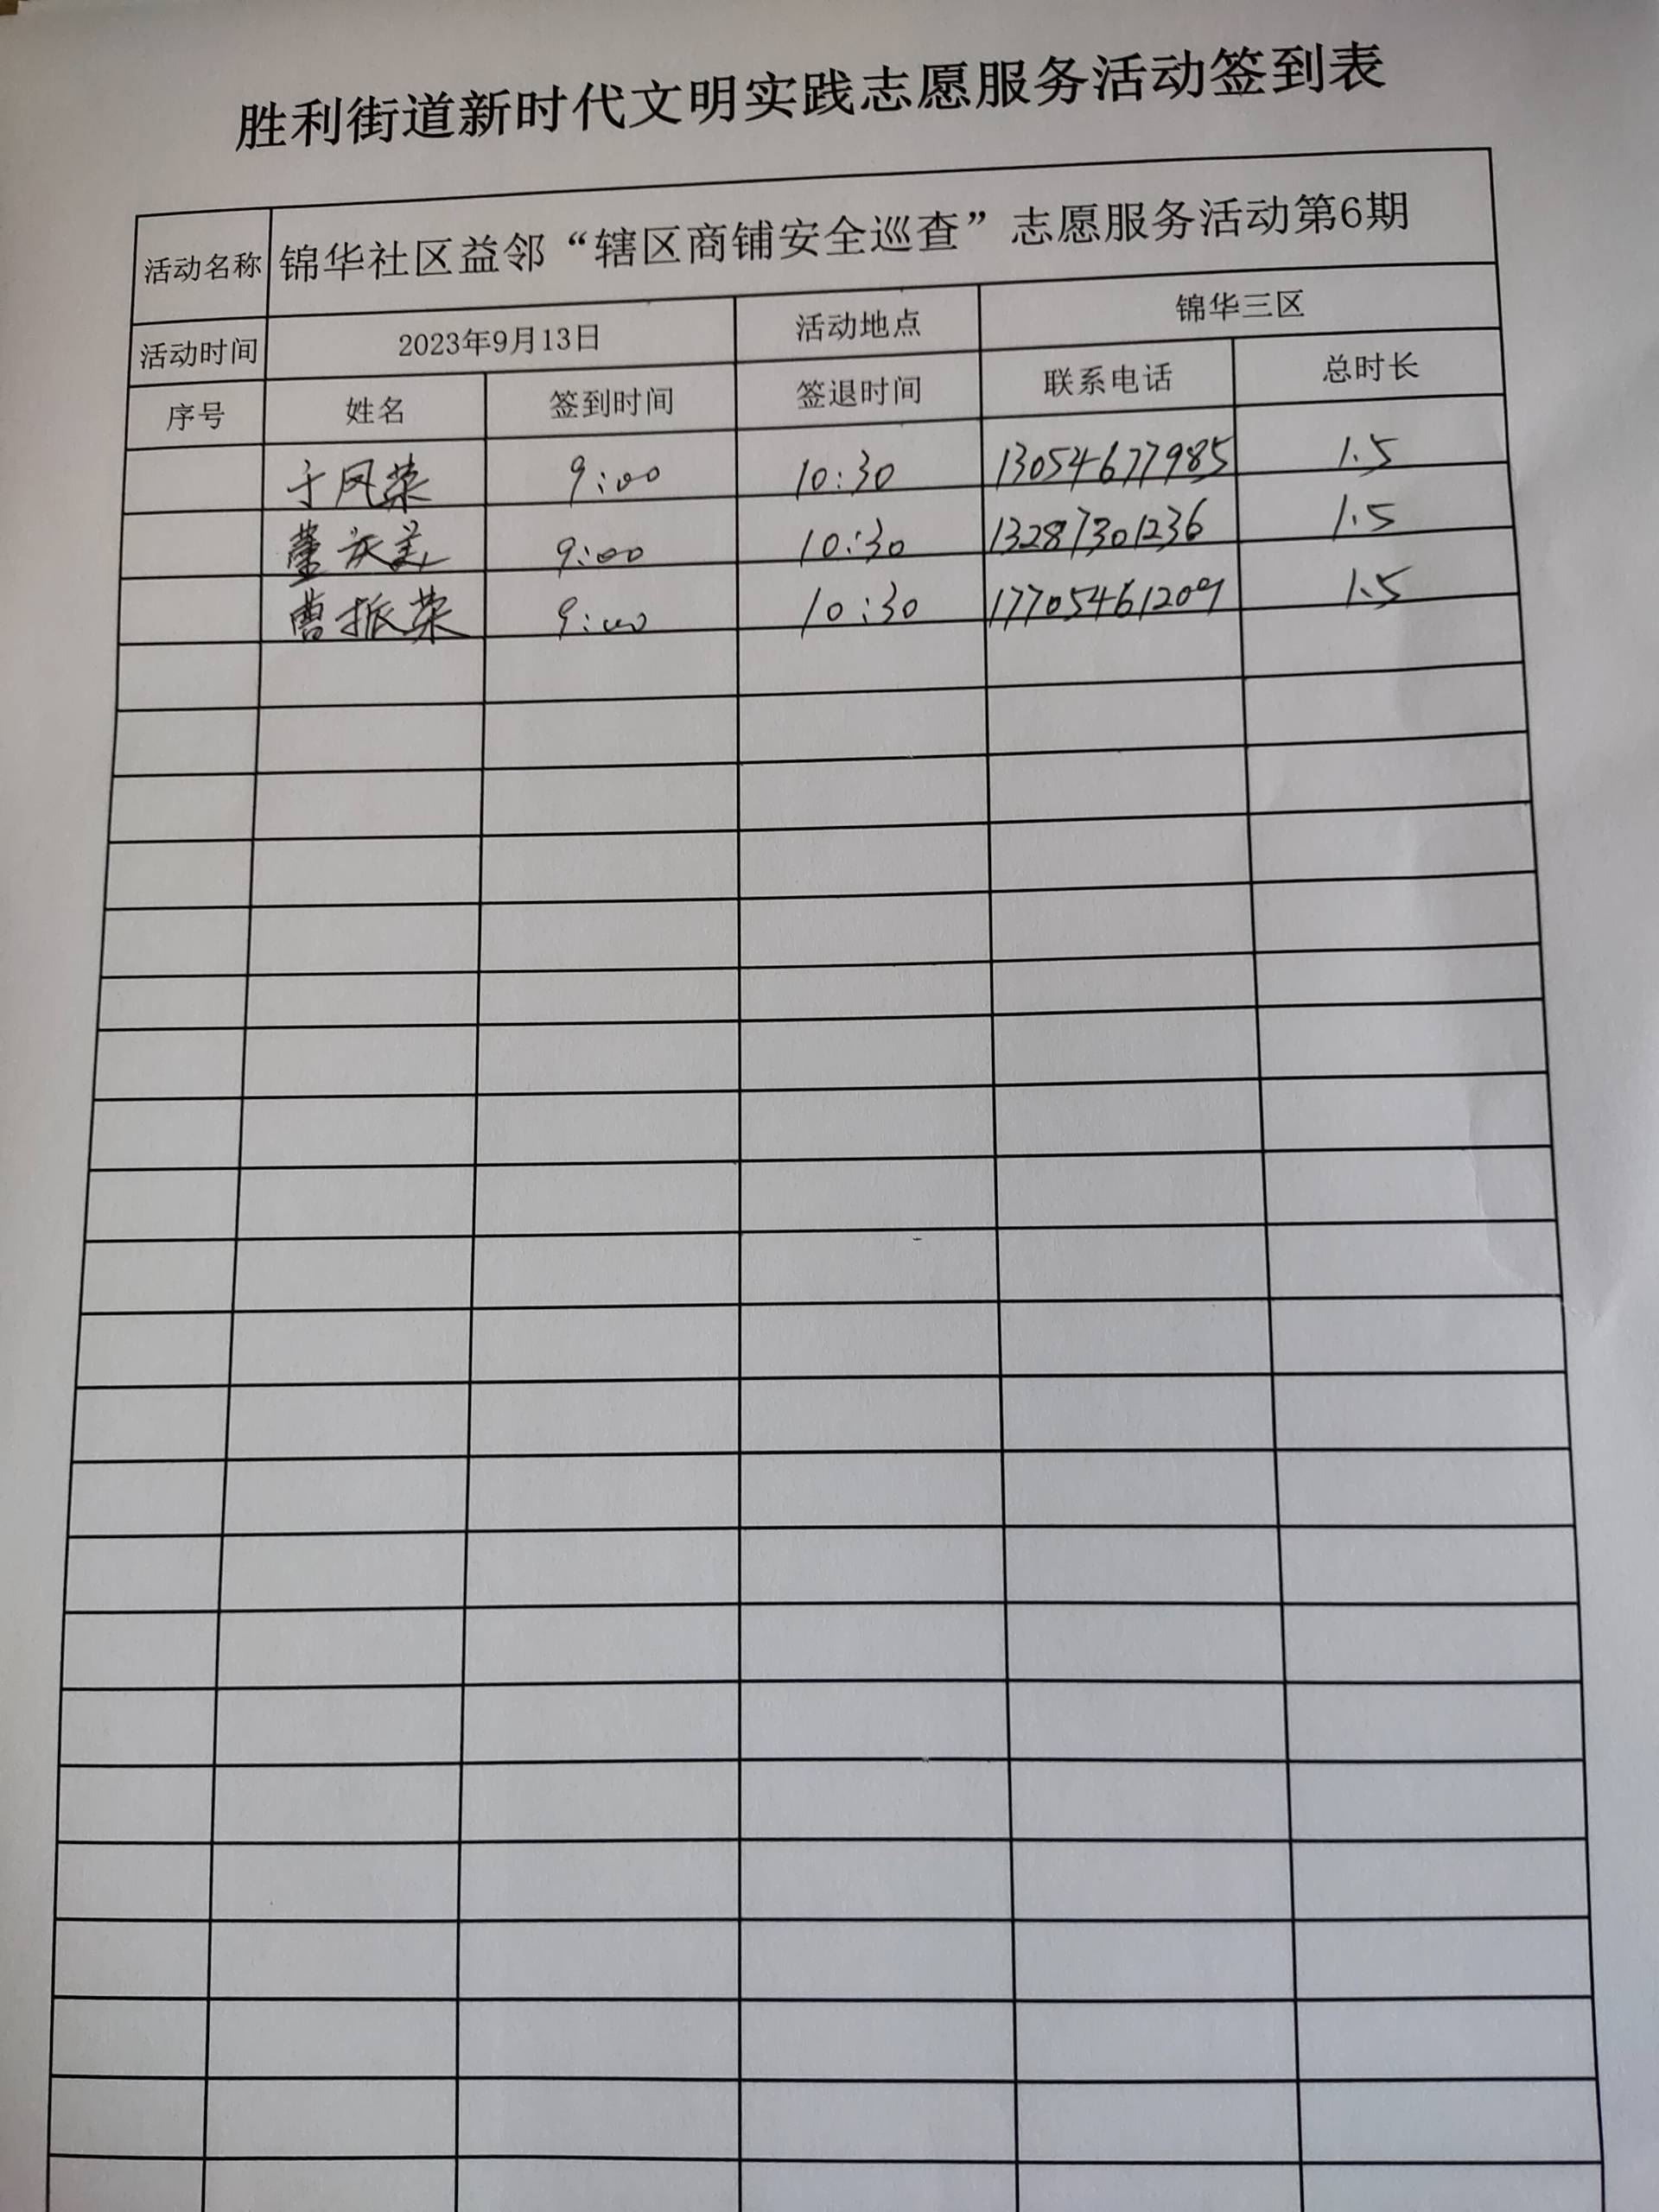 胜利街道新时代文明实践志愿服务活动签到表
活动名称 锦华社区益邻“辖区商铺安全巡查”志愿服务活动第6期
活动时间 2023年9月13日 活动地点 锦华三区
序号 姓名 签到时间 签退时间 联系电话 总时长
于凤荣 9:00 10:30 13054677985 1.5
董庆美 9:00 10:30 13287301236 1.5
曹振荣 9:00 10:30 17705461209 1.5